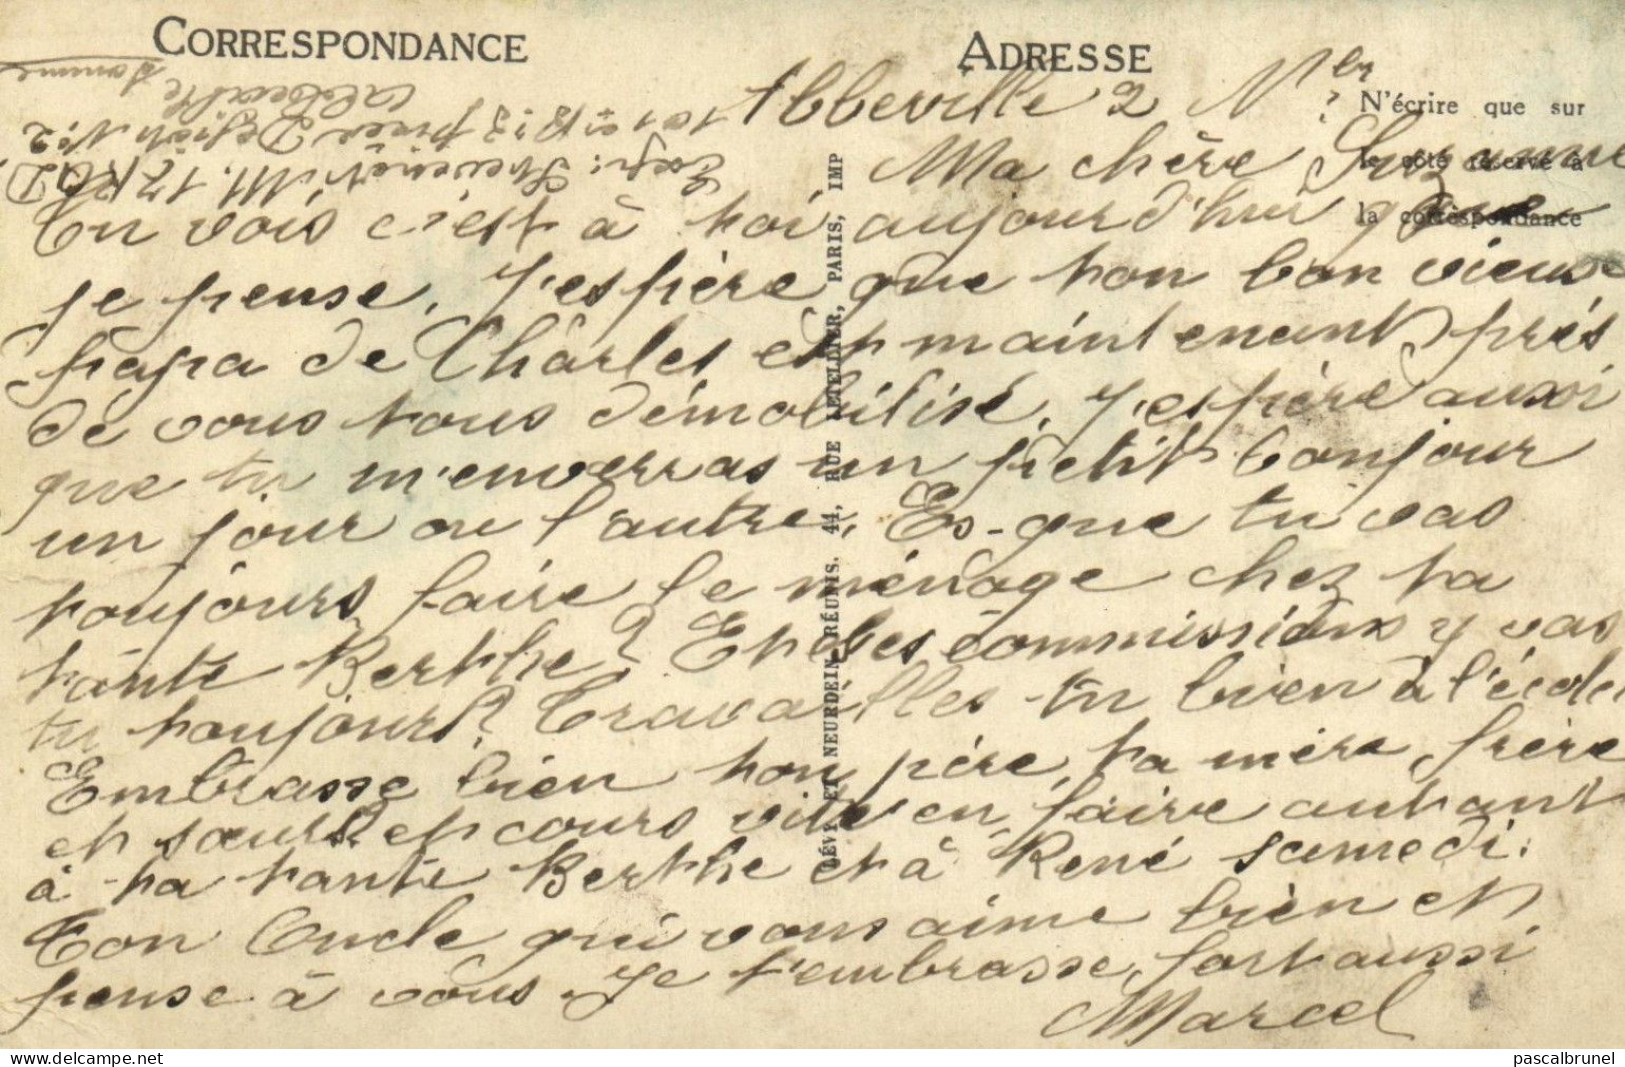 CORRESPONDANCE
ADRESSE
N'écrire que sur
le côté réservé à
la correspondance
LÉVY ET NEURDEIN RÉUNIS. 44, RUE LETELLIER, PARIS, IMP
Exp: M. 
Somme
Abbeville 2 Nbr
Ma chère Suzanne
Tu vois c'est à toi aujourd'hui que
je pense. J'espère que ton bon vieux
papa de Charles est maintenant près
de vous tous démobilisé. J'espère aussi
que tu m'enverras un petit bonjour
un jour ou l'autre. Es-que tu vas
toujours faire le ménage chez ta
tante Berthe? Et les commissions y vas
tu toujours? Travailles-tu bien à l'école
Embrasse bien ton père, ta mère, frère
et sœurs et cours vite en faire autant
à ta tante Berthe et à René samedi.
Ton Oncle qui vous aime bien et
pense à vous. Je t'embrasse fort aussi
Marcel
pascalbrunel